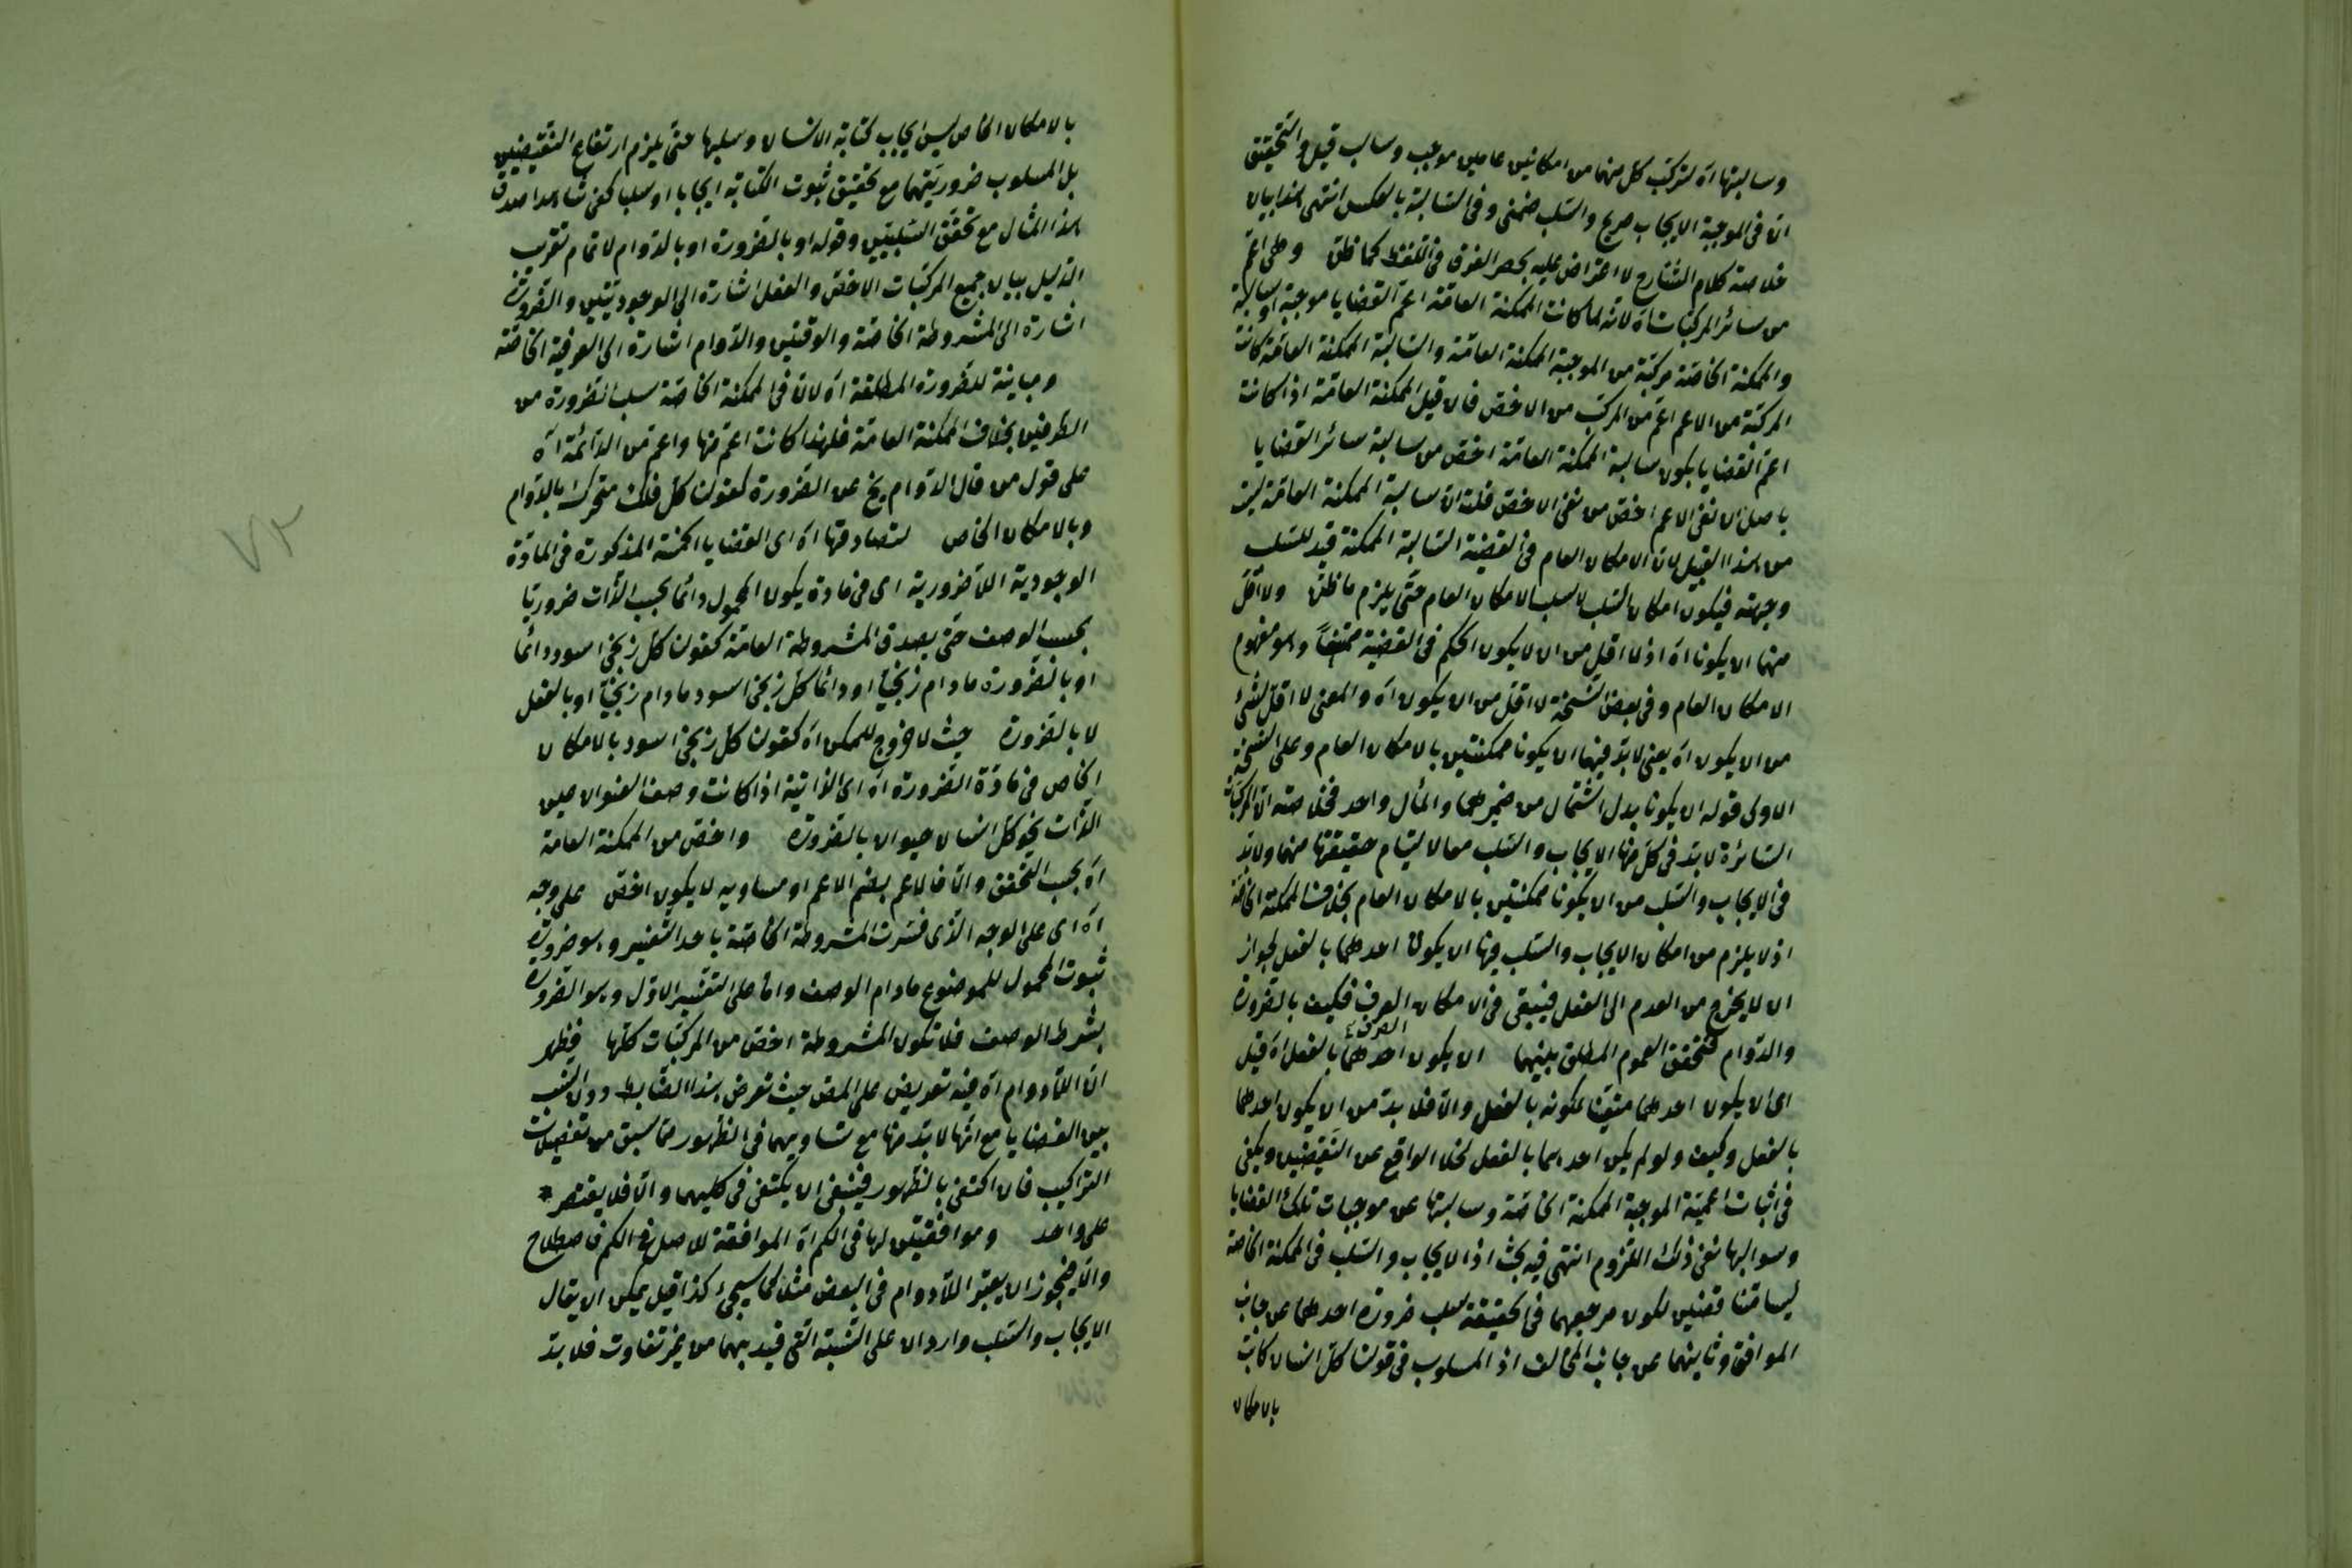 وسالبتها آه لتركب كل منهما من امكانين عامين موجب وسالب قيل والتحقيق
ان في الموجبة الايجاب صريح والسلب ضمني وفي السالبة بالعكس انتهى هذا بيان
خلاصة كلام الشارح لا اعتراض عليه بحصر الفرق في اللفظ كما ظن وهي اعم
من سائر المركبات آه لانه لما كانت الممكنة العامة اعم القضايا موجبة او سالبة
والممكنة الخاصة مركبة من الموجبة الممكنة العامة والسالبة الممكنة العامة كانت
المركبة من الاعم اعم من المركب من الاخص فان قيل الممكنة العامة اذا كانت
اعم القضايا يكون سالبة الممكنة العامة اخص من سالبة سائر القضايا
باصل ان نفي الاعم اخص من نفي الاخص قلنا ان سالبة الممكنة العامة ليست
من هذا القبيل لان الامكان العام في القضية السالبة الممكنة قيد للسلب
وجهته فيكون امكان السلب لا سلب الامكان العام حتى يلزم ما ظن ولا اقل
منهما ان يكونا آه اذ لا اقل من ان لا يكون الحكم في القضية ممتنعا وهو مفهوم
الامكان العام وفي بعض النسخة لا اقل من ان يكون آه والمعنى لا اقل لشئ
من ان يكون آه يعني لا بد فيهما ان يكونا ممكنتين بالامكان العام وعلى النسخة
الاولى قوله ان يكونا بدل اشتمال من ضميرهما والمآل واحد فخلاصته ان المركبات
السائرة لا بد في كل منها الايجاب والسلب معا لالتيام حقيقتها منهما ولا بد
في الايجاب والسلب من ان يكونا ممكنتين بالامكان العام بخلاف الممكنة الخاصة
اذ لا يلزم من امكان الايجاب والسلب فيها ان يكون احدهما بالفعل لجواز
ان لا يخرج من العدم الى الفعل فيبقى في الامكان الصرف فكيف بالضرورة
والدوام فتحقق العموم المطلق بينهما ان يكون احدهما بالفعل آه قيل
اى ان يكون احدهما متيقنا بكونه بالفعل والا فلا بد من ان يكون احدهما
بالفعل وكيف ولو لم يكن احدهما بالفعل لخلا الواقع عن النقيضين ويكفي
في اثبات اعمية الموجبة الممكنة الخاصة وسالبتها عن موجبات تلك القضايا
وسوالبها نفي ذلك اللزوم انتهى فيه بحث اذ الايجاب والسلب في الممكنة الخاصة
ليسا متناقضين لكون مرجعهما في الحقيقة سلب ضرورة احدهما عن جانب
الموافق وثانيهما عن جانب المخالف اذ المسلوب في قولنا كل انسان كاتب
بالامكان
بالامكان الخاص ليس ايجاب كتابة الانسان وسلبها حتى يلزم ارتفاع النقيضين
بل المسلوب ضروريتهما مع تحقق ثبوت الكتابة ايجابا او سلبا كفى شاهدا صدق
هذا المثال مع تحقق السلبيين وقوله او بالضرورة او بالدوام لاتمام تقريب
الدليل ببيان جميع المركبات الاخص والفعل اشارة الى الوجوديتين والضرورة
اشارة الى المشروطة الخاصة والوقتين والدوام اشارة الى العرفية الخاصة
ومباينة للضرورة المطلقة آه لان في الممكنة الخاصة سلب الضرورة من
الطرفين بخلاف الممكنة العامة فلهذا كانت اعم منها واعم من الدائمة آه
على قول من قال الدوام يخ عن الضرورة كقولنا كل فلك متحرك بالدوام
وبالامكان الخاص لتصادقها آه اى القضايا الخمسة المذكورة في المادة
الوجودية اللاضرورية اى في مادة يكون المحمول دائما بحسب الذات ضروريا
بحسب الوصف حتى يصدق المشروطة العامة كقولنا كل زنجي اسود دائما
او بالضرورة مادام زنجيا او دائما كل زنجي اسود مادام زنجيا او بالفعل
لا بالضرورة حيث لا خروج للممكن آه كقولنا كل زنجي اسود بالامكان
الخاص في مادة الضرورة آه اى الذاتية اذا كانت وصف العنوان عين
الذات نحو كل انسان حيوان بالضرورة واخص من الممكنة العامة
آه بحسب التحقق والا فالاعم بضم الاعم او مساويه لا يكون اخص على وجه
آه اى على الوجه الذى فسرت المشروطة الخاصة باحد التفسير وهو ضرورة
ثبوت المحمول للموضوع مادام الوصف واما على التفسير الاول وهو الضرورة
بشرط الوصف فلا تكون المشروطة اخص من المركبات كلها فيظهر
ان اللادوام آه فيه تعريض على المص حيث تعرض هذا الضابط دون النسب
بين القضايا مع انها لا بد منها مع تساويهما في الظهور مما سبق من تفصيلات
التراكيب فان اكتفى بالظهور فينبغي ان يكتفي في كليهما والا فلا يقتصر *
على واحد وموافقتين لها في الكم آه الموافقة للاصل في الكم اصطلاح
والا فيجوز ان يعتبر اللادوام في البعض مثلا كما سيجئ كذا قيل يمكن ان يقال
الايجاب والسلب واردان على النسبة التى قيد بهما من غير تفاوت فلا بد